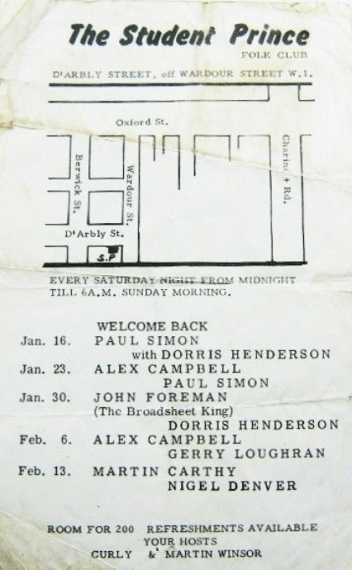 The Student Prince
FOLK CLUB
D'ARBLY STREET, off WARDOUR STREET W.1.
Oxford St.
Berwick St.
Wardour St.
Rd.
D'Arbly St.
S.P
EVERY SATURDAY NIGHT FROM MIDNIGHT
TILL 6A.M. SUNDAY MORNING.
WELCOME BACK
Jan. 16. PAUL SIMON
with DORRIS HENDERSON
Jan. 23. ALEX CAMPBELL
PAUL SIMON
Jan. 30. JOHN FOREMAN
(The Broadsheet King)
DORRIS HENDERSON
Feb. 6. ALEX CAMPBELL
GERRY LOUGHRAN
Feb. 13. MARTIN CARTHY
NIGEL DENVER
ROOM FOR 200 REFRESHMENTS AVAILABLE
YOUR HOSTS
CURLY & MARTIN WINSOR